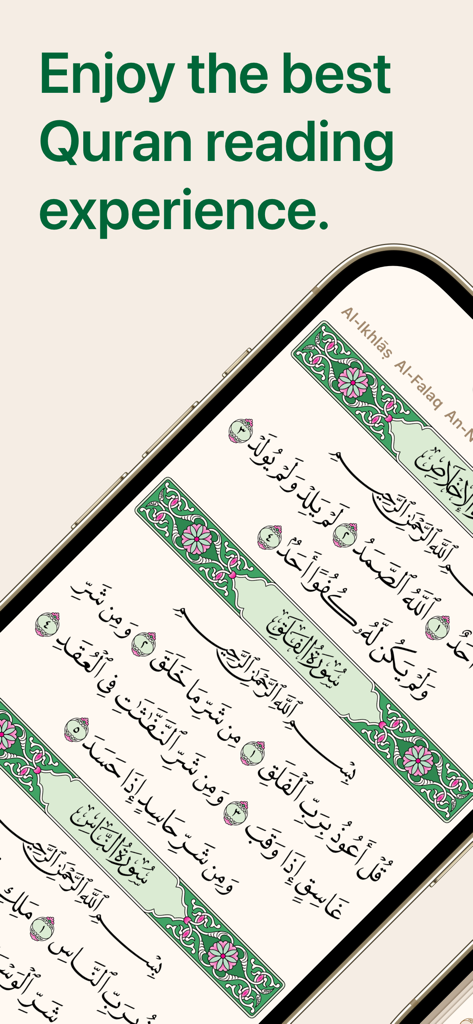 Enjoy the best
Quran reading
experience.
Al-Ikhlāṣ Al-Falaq
الإِخْلَاصِ
ٱللَّهِ ٱلرَّحْمَٰنِ ٱلرَّحِيمِ
١ ٱللَّهُ ٱلصَّمَدُ ٢ لَمْ يَلِدْ وَلَمْ يُولَدْ ٣
وَلَمْ يَكُن لَّهُۥ كُفُوًا أَحَدٌۢ ٤
سُورَةُ الفَلَقِ
بِسْمِ ٱللَّهِ ٱلرَّحْمَٰنِ ٱلرَّحِيمِ
قُلْ أَعُوذُ بِرَبِّ ٱلْفَلَقِ ١ مِن شَرِّ مَا خَلَقَ ٢ وَمِن شَرِّ
غَاسِقٍ إِذَا وَقَبَ ٣ وَمِن شَرِّ ٱلنَّفَّٰثَٰتِ فِى ٱلْعُقَدِ ٤
وَمِن شَرِّ حَاسِدٍ إِذَا حَسَدَ ٥
سُورَةُ النَّاسِ
بِسْمِ ٱللَّهِ ٱلرَّحْمَٰنِ ٱلرَّحِيمِ
بِرَبِّ ٱلنَّاسِ ١ مَلِكِ
شَرِّ